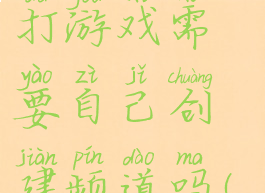 打游戏需
yào zì jǐ chuàng
要自己创
jiàn pín dào ma
建频道吗(